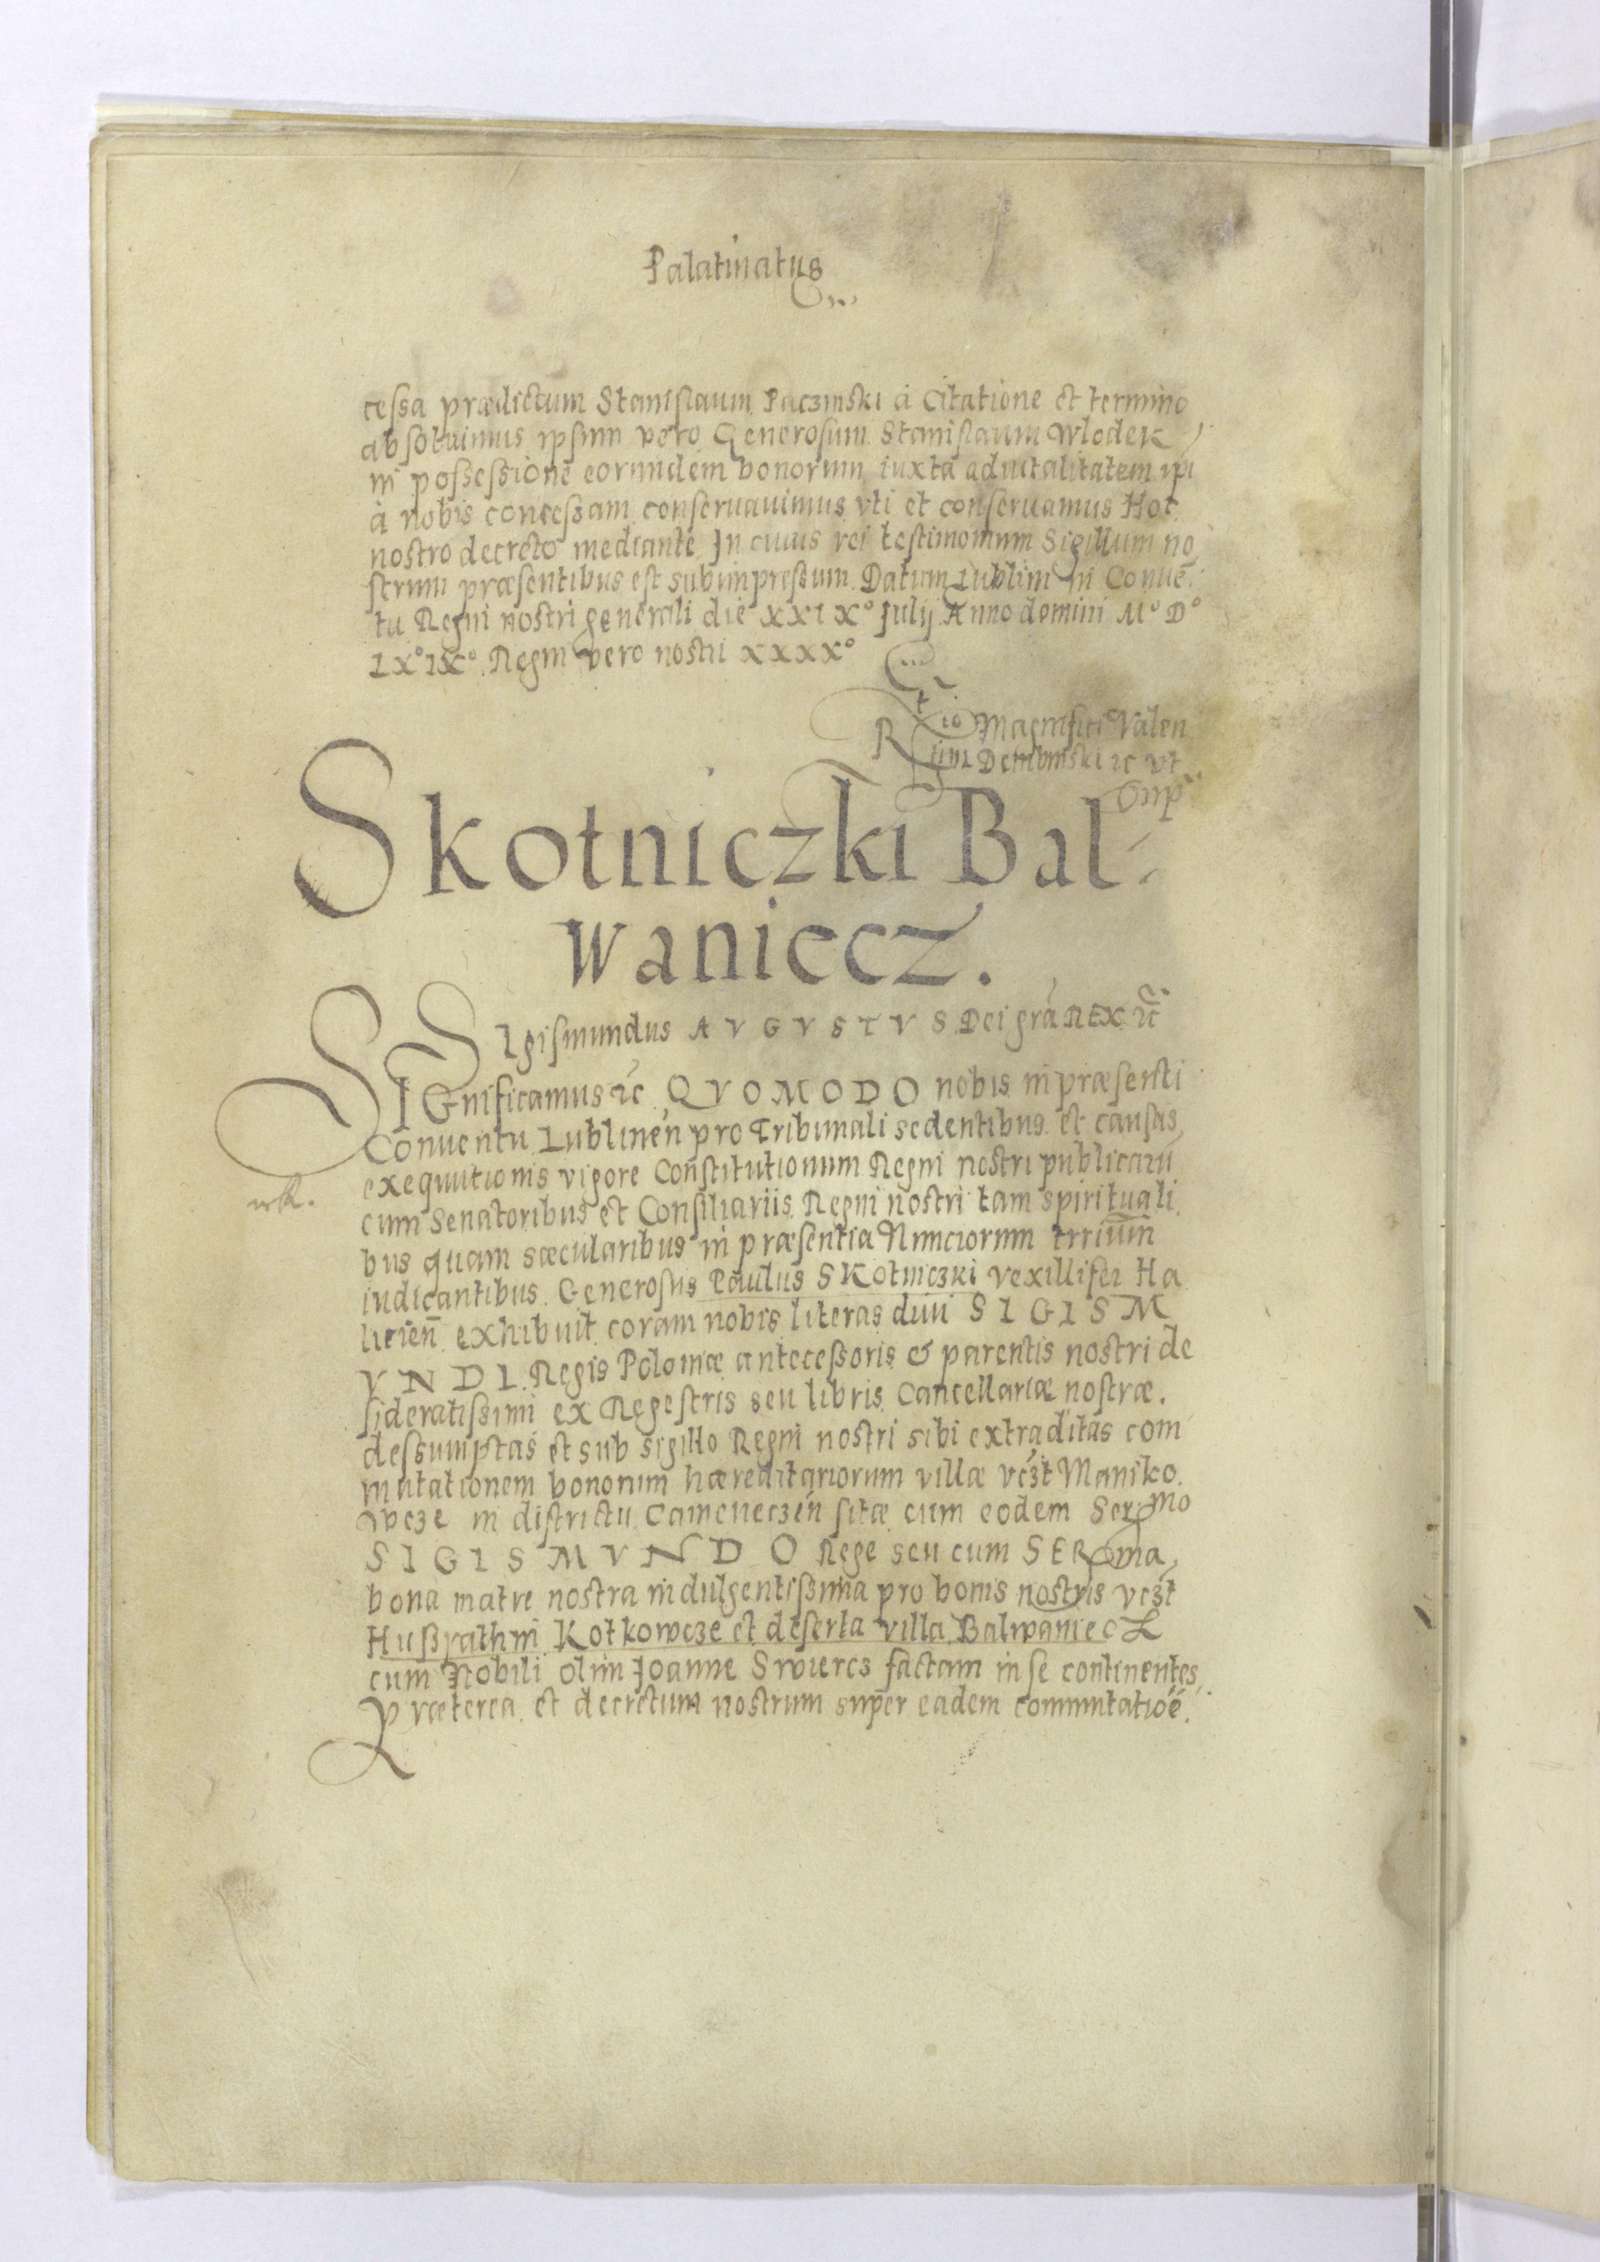 Palatinatus
cessa prædictum Stanislaum Paczinski à Citatione et termino
absoluimus ipsum vero Generosum Stanislaum Wlodek
in possessione eorundem bonorum iuxta aduitalitatem ipi
à nobis concessam conseruauimus vti et conseruamus Hoc
nostro decreto mediante In cuius rei testimonium Sigillum no
strum præsentibus est subimpressum. Datum Lublini in Conuē
tu Regni nostri generali die XXIX° Julij Anno domini M° D°
LX°IX°. Regni vero nostri XXXX°
Rtio Magnifici Valen
tini Dembinski ꝛc vt
sup
Skotniczki Bal
waniecz.
SIgismundus AVGVSTVS Dei grā REX ꝛc
SIGnificamus ꝛc QVOMODO nobis in præsenti
Conuentu Lublinen̄ pro Tribunali sedentibus et causas
exequutionis vigore Constitutionum Regni nostri publicarū
cum Senatoribus et Consiliariis Regni nostri tam spirituali
bus quam sæcularibus in præsentia Nunciorum trrium
iudicantibus. Generosus Paulus SKotniczki vexillifer Ha
licien̄ exhibuit coram nobis literas diui SIGISM
VNDI. Regis Poloniæ antecessoris & parentis nostri de
sideratissimi ex Regestris seu libris Cancellariæ nostræ.
dessumptas et sub sigillo Regni nostri sibi extraditas com
mutationem bonorum hæreditariorum villæ vczt Maniko
wcze in districtu Cameneczen̄ sitæ cum eodem Sermo
SIGISMVNDO Rege seu cum SERma
bona matre nostra indulgentissima pro bonis nostris vczt
Hußyathin Kotkowcze et deserta villa Balwaniecz
cum Nobili olim Joanne Swiercz factam in se continentes
Præterea et decretum nostrum super eadem commutatiōe.